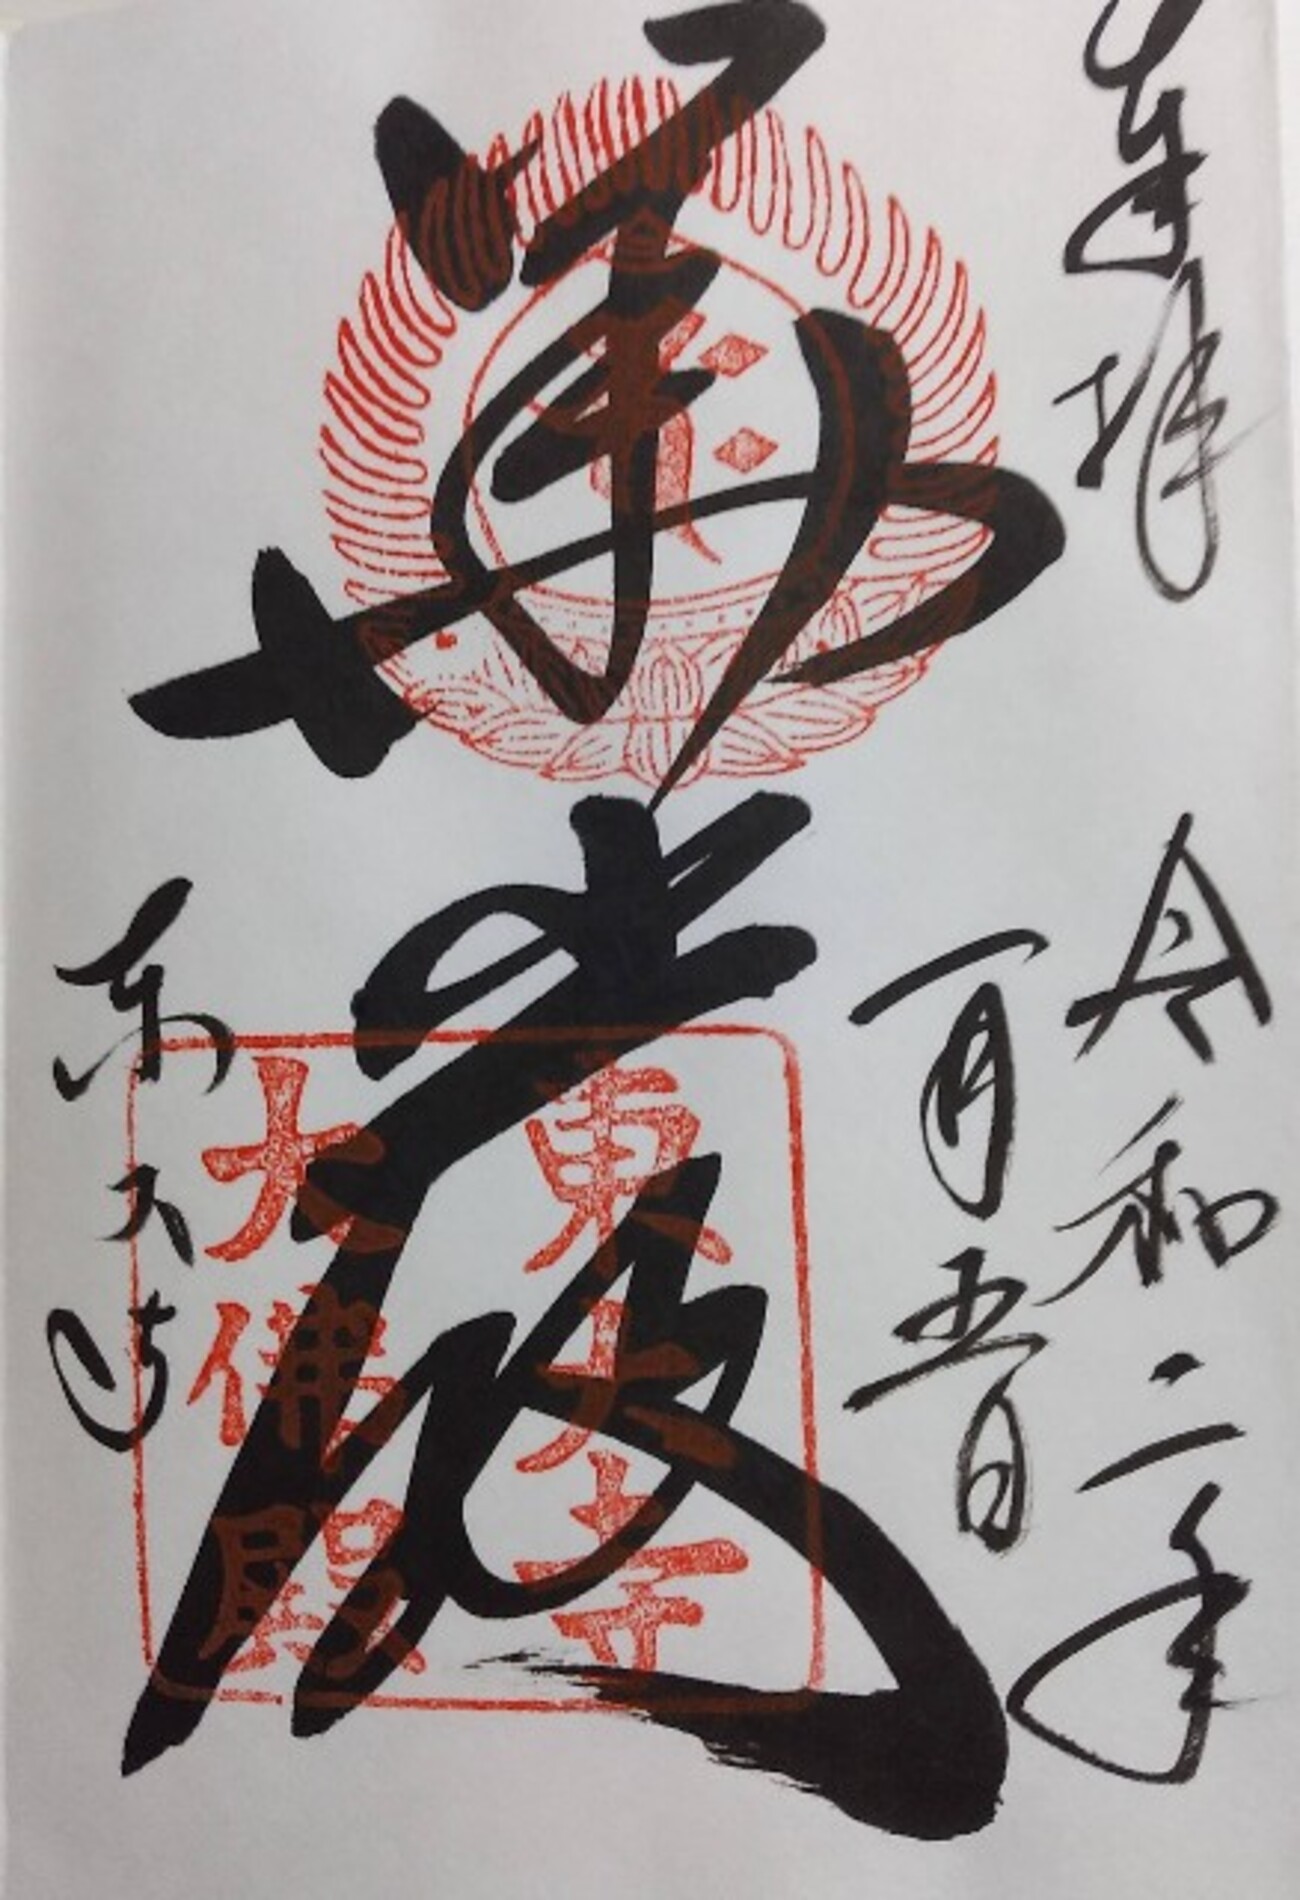 奉拝
令和二年
一月五日
華厳
東大寺
大佛殿
東大寺